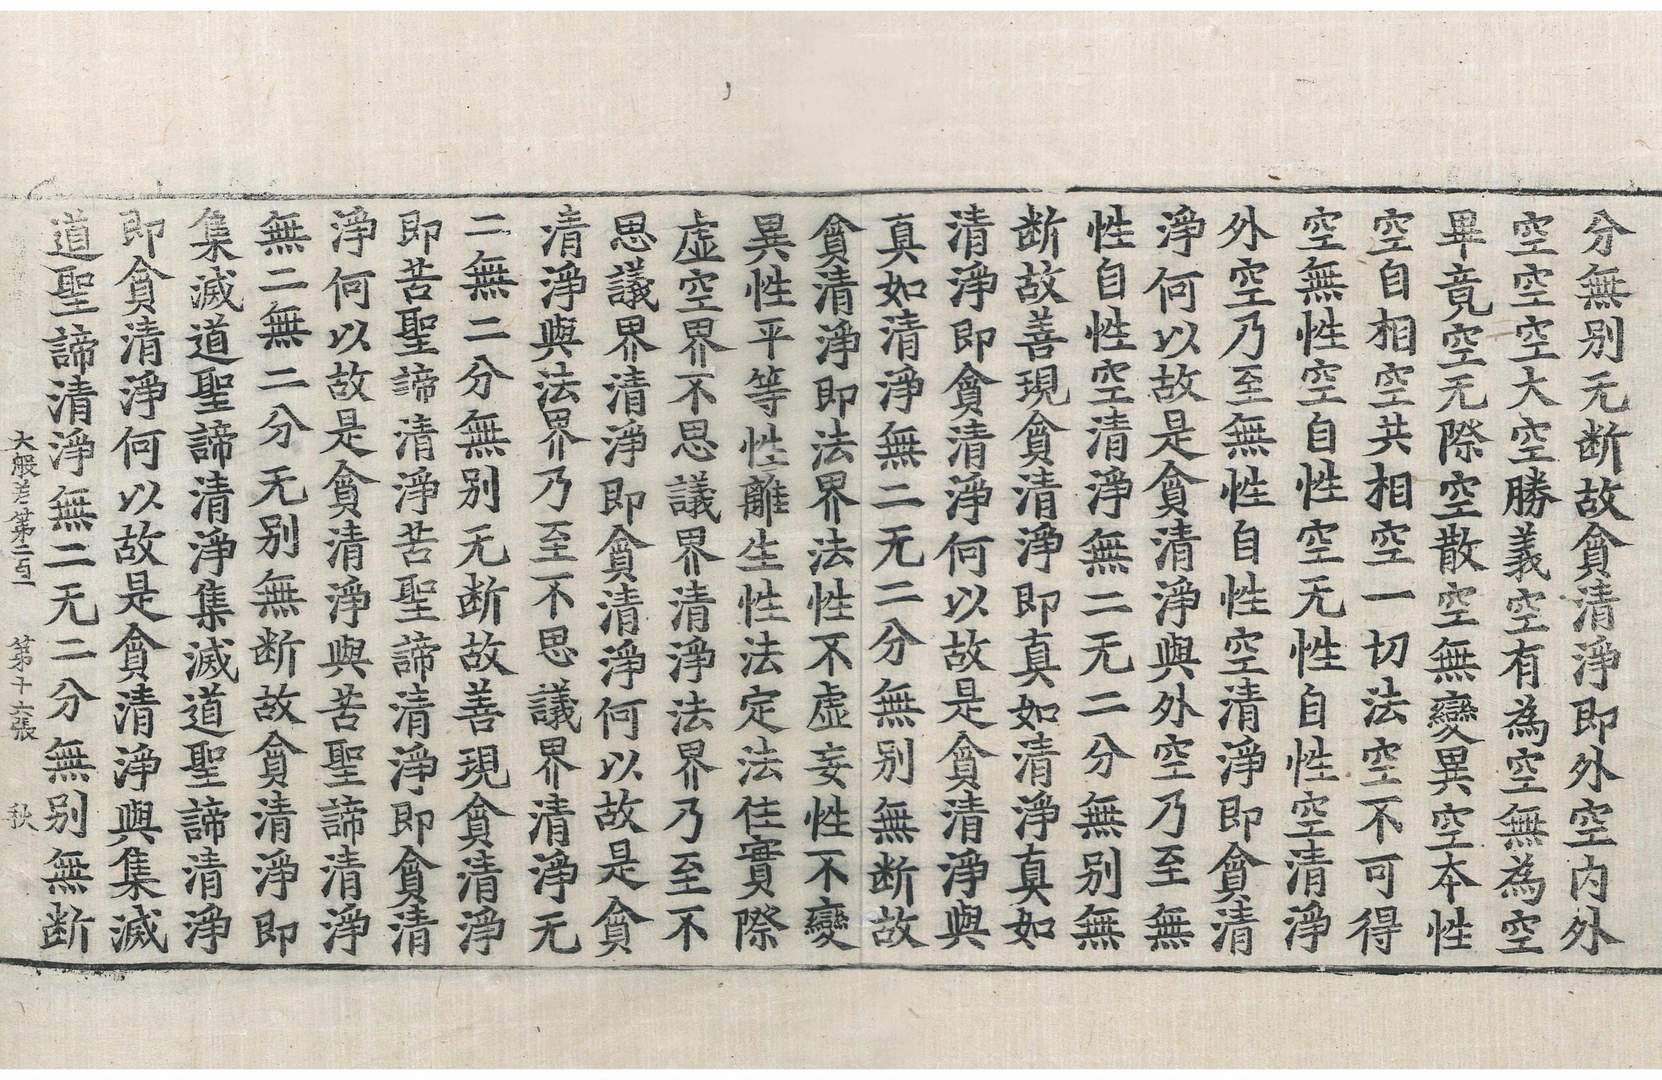 分無別无断故貪清淨即外空內外
空空空大空勝義空有為空無為空
畢竟空无際空散空無變異空本性
空自相空共相空一切法空不可得
空無性空自性空无性自性空清淨
外空乃至無性自性空清淨即貪清
淨何以故是貪清淨與外空乃至無
性自性空清淨無二无二分無別無
断故善現貪清淨即真如清淨真如
清淨即貪清淨何以故是貪清淨與
真如清淨無二无二分無別無断故
貪清淨即法界法性不虛妄性不變
異性平等性離生性法定法住實際
虛空界不思議界清淨法界乃至不
思議界清淨即貪清淨何以故是貪
清淨與法界乃至不思議界清淨无
二無二分無別无断故善現貪清淨
即苦聖諦清淨苦聖諦清淨即貪清
淨何以故是貪清淨與苦聖諦清淨
無二無二分无別無断故貪清淨即
集滅道聖諦清淨集滅道聖諦清淨
即貪清淨何以故是貪清淨與集滅
道聖諦清淨無二无二分無別無断
大般若第二百一 第十六張 秋